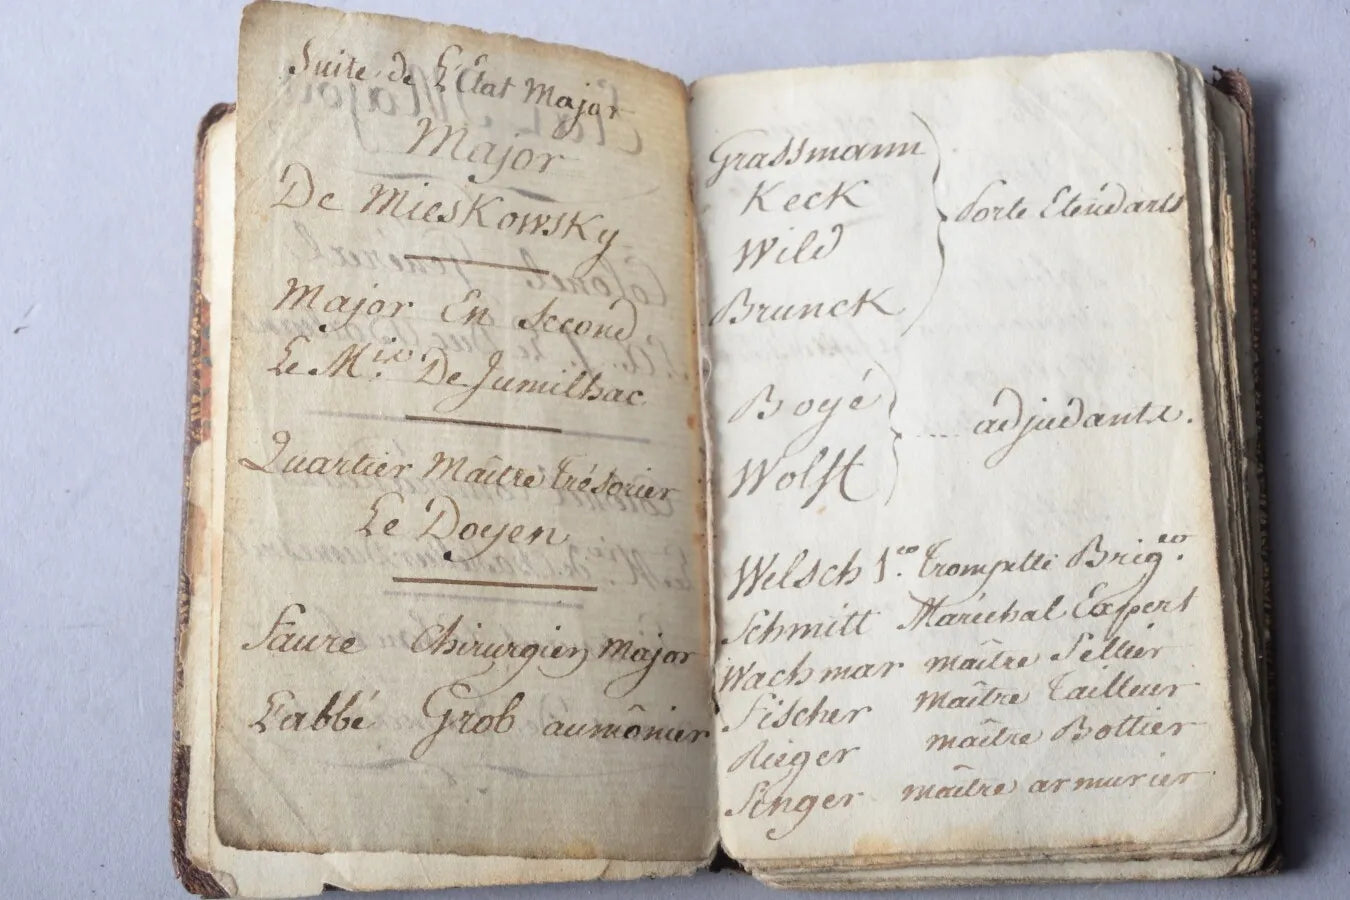 Suite de L'Etat Major
Major
De Mieskowsky
Major En Second
Le M.is De Jumilhac
Quartier Maître trésorier
Le Doyen
Faure Chirurgien Major
L'abbé Grob aumônier
Grassmann
Keck
Wild
Brunck
Porte Etendarts
Boyé
Wolff
.... adjudants.
Welsch 1.er trompette Brig.er
Schmitt Maréchal Expert
Wachmar maître Sellier
Fischer maître tailleur
Rieger maître Bottier
Singer maître armurier